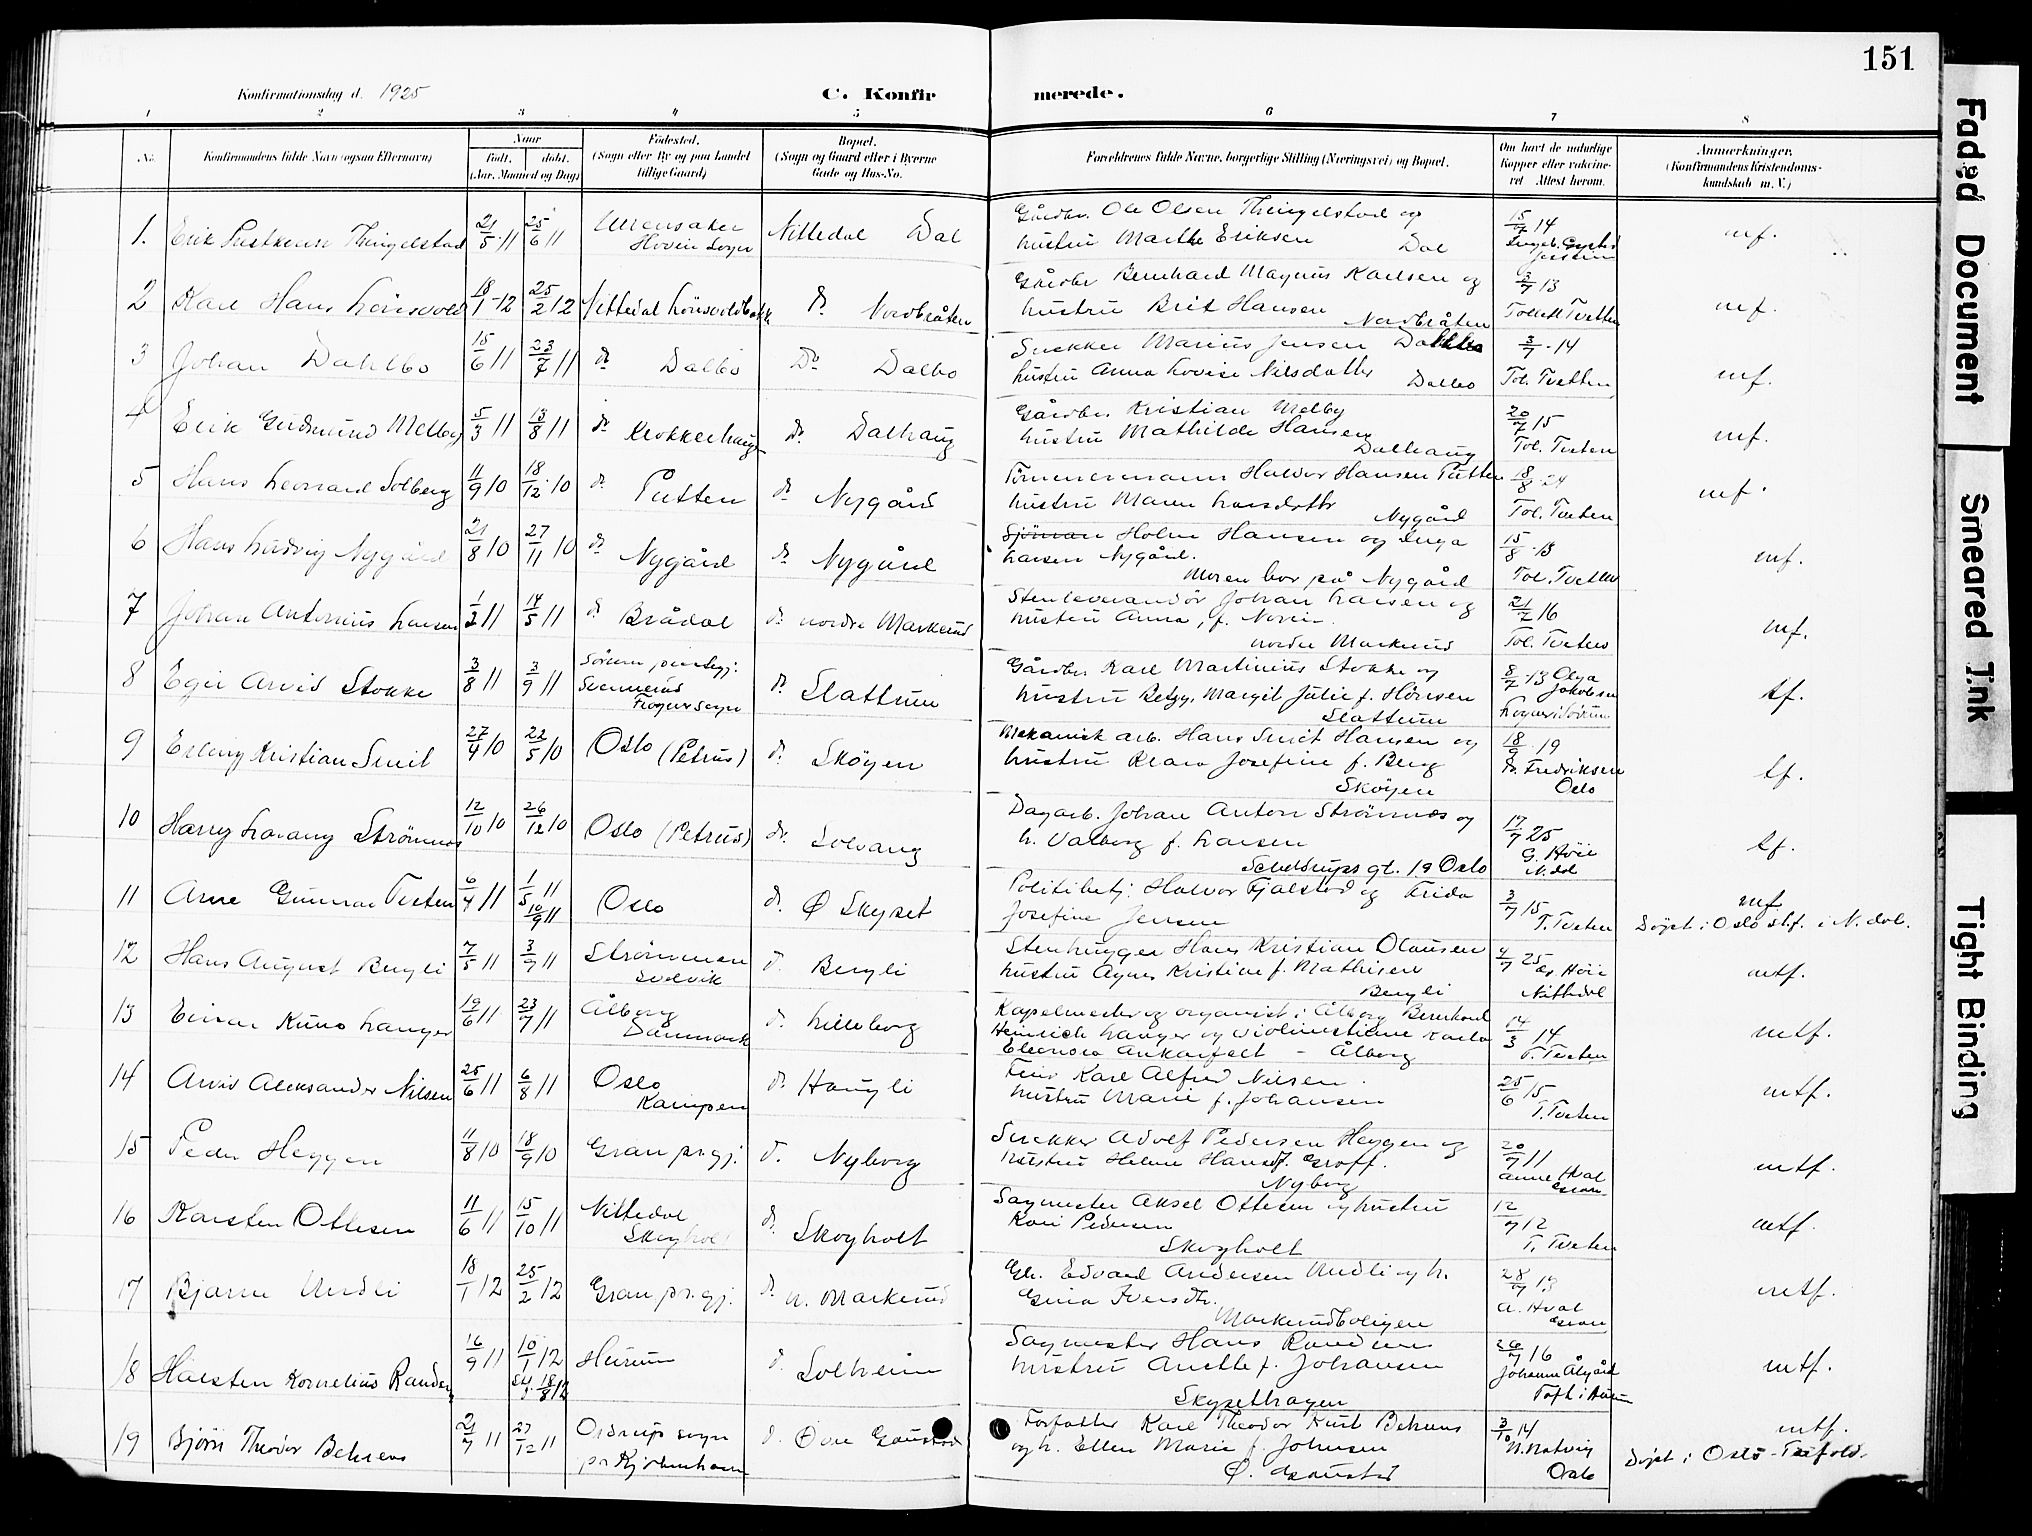 151
Konfirmationsdag d. 1925
C. Konfirmerede.
1 2 3 4 5 6 7 8
No.
Konfirmandens fulde Navn (ogsaa Efternavn)
Naar
født. døbt.
(Aar, Maaned og Dag)
Fødested.
(Sogn eller By og paa Landet
tillige Gaard)
Bopæl.
(Sogn og Gaard eller i Byerne
Gade og Hus-No.
Forældrenes fulde Navne, borgerlige Stilling (Næringsvei) og Bopæl.
Om havt de naturlige
Kopper eller vaccine-
ret Attest herom.
Anmærkninger.
(Konfirmandens Kristendoms-
kundskab m. V.)
1. Erik Thingelstad 21/5 11 25/6 11 Ullensaker Nittedal Dal Gårdbr. Ole Olsen Thingelstad og 15/7 14 mf.
Hovin Sogn hustru Marthe Eriksen Dal
2 Karl Hans Lönsvold 18/1 12 25/2 12 Nittedal do. Nordbråten Gårdbr Bernhard Magnus Karlsen og 3/7 13 mf.
hustru Brit Hansen Nordbråten Tollef Tveten
3 Johan Dahlbo 15/6 11 23/7 11 do Dalbo Do Dalbo Snekker Marius Jensen 3/7 14 mf.
hustru Anna Lovise Nilsdatter Dalbo Tol. Tvetten
4 Erik Gudmund Melby 5/3 11 13/8 11 do Krokkerhaugen do. Dalhaug Gårdbr. Kristian Melby 20/7 15 mf.
hustru Mathilde Hansen Dalhaug Tol. Tveten
5 Hans Leonard Solberg 11/9 10 18/12 10 do Tutten do Nygård Tömmermann Halvor Hansen 18/8 24 mf.
hustru Maren Larsdatter Nygård Tol. Tveten
6 Hans Ludvig Nygård 21/8 10 27/11 10 do Nygård do Nygård Sjöman Holm Hansen og Inga 15/8 13 mf.
Larsen Nygård.
Moren bor på Nygård Tol. Tveten
7 Johan Antonius Larsen 14/5 11 do Brådal do nordre Markerud Stenleverandör Johan Larsen og 21/7 16 mf.
hustru Anna, f. Noren
nordre Markerud Tol. Tveten
8 Egil Arvid Stokke 3/8 11 3/9 11 Sörum prestegj. do Slattum Gårdbr. Karl Martinius Stokke og 8/7 13 Olga Jakobsen tf.
Frogner sogn hustru Betzy Margit Julie f. Hönsen
Slattum
9 Erling Kristian Smit 27/4 10 22/5 10 Oslo (Petrus) do. Sköyen Mekanisk arb. Hans Smit Hansen og 18/9 19 tf.
hustru Klara Josefine f. Berg Fredriksen
Sköyen Oslo
10 Harry Lorang Strömnes 12/10 10 26/12 10 Oslo (Petrus) do. Solvang Dagarb. Johan Anton Strömnes og 17/7 25 tf.
h. Valborg f. Larsen G. Höie
Scheldrups gt. 19 Oslo N.dal
11 Arne Gunnar Tveten 6/4 11 1/5 11 Oslo do. Ø Skyset Politibetj. Halvor Fjalstad og Frida 3/7 15 mf
10/9 11 Josefine Jensen T. Tveten Döpt i Oslo st.f. i N.dal.
12 Hans August Bergli 7/5 11 3/9 11 Strömmen d. Bergli Stenhugger Hans Kristian Olausen 4/7 25 mtf.
Solvik hustru Agnes Kristine f. Mathisen G. Höie
Bergli Nittedal
13 Einar Kuno Langer 19/6 11 23/7 11 Ålborg d. Lilleborg Kapelmester og organist i Ålborg Bernhard 14/3 14 mtf.
Danmark Heinrich Langer og violinistinne Karla T. Tveten
Eleonora Ankarfelt - Ålborg
14 Arvid Aleksander Nilsen 25/6 11 6/8 11 Oslo do Haugli Karl Alfred Nilsen 25/6 15 mtf.
Kampen hustru Marie f. Johansen T. Tveten
15 Peder Heggen 11/8 10 18/9 10 Gran pr.gj. d. Nyborg Snekker Adolf Pedersen Heggen og 20/7 11 mtf.
hustru Helene Hansdt. Groff. Anne Hval
Nyborg Gran
16 Karsten Ottesen 11/6 11 15/10 11 Nittedal do. Skogholt Sagmester Aksel Ottesen og hustru 12/7 12 mtf.
Skogholt Kari Pedersen T. Tveten
Skogholt
17 Bjarne Undli 18/1 12 25/2 12 Gran pr.gj. do n. Markerud Gbr. Edvard Andersen Undli og h. 28/7 13 mtf.
Gina Iversdtr. A. Hval
Markerudboligen Gran
18 Halsten Kornelius Randen 16/9 11 10/1 12 Hurum d. Solheim Sagmester Hans Randen 26/7 16 mtf.
18/8 12 hustru Anette f. Johansen Johanne Ålgård
Skysethagen
19 Björn Theodor Behrens 21/7 11 27/12 11 Ordrup sogn d. Övre Gaustad Forfatter Karl Theodor Kurt Behrens 3/10 14 mtf.
pr Kjöbenhavn og h. Ellen Marie f. Johnsen N. Natvig Döpt i Oslo
Ø. Gaustad Oslo
Faded Document
Smeared Ink
Tight Binding